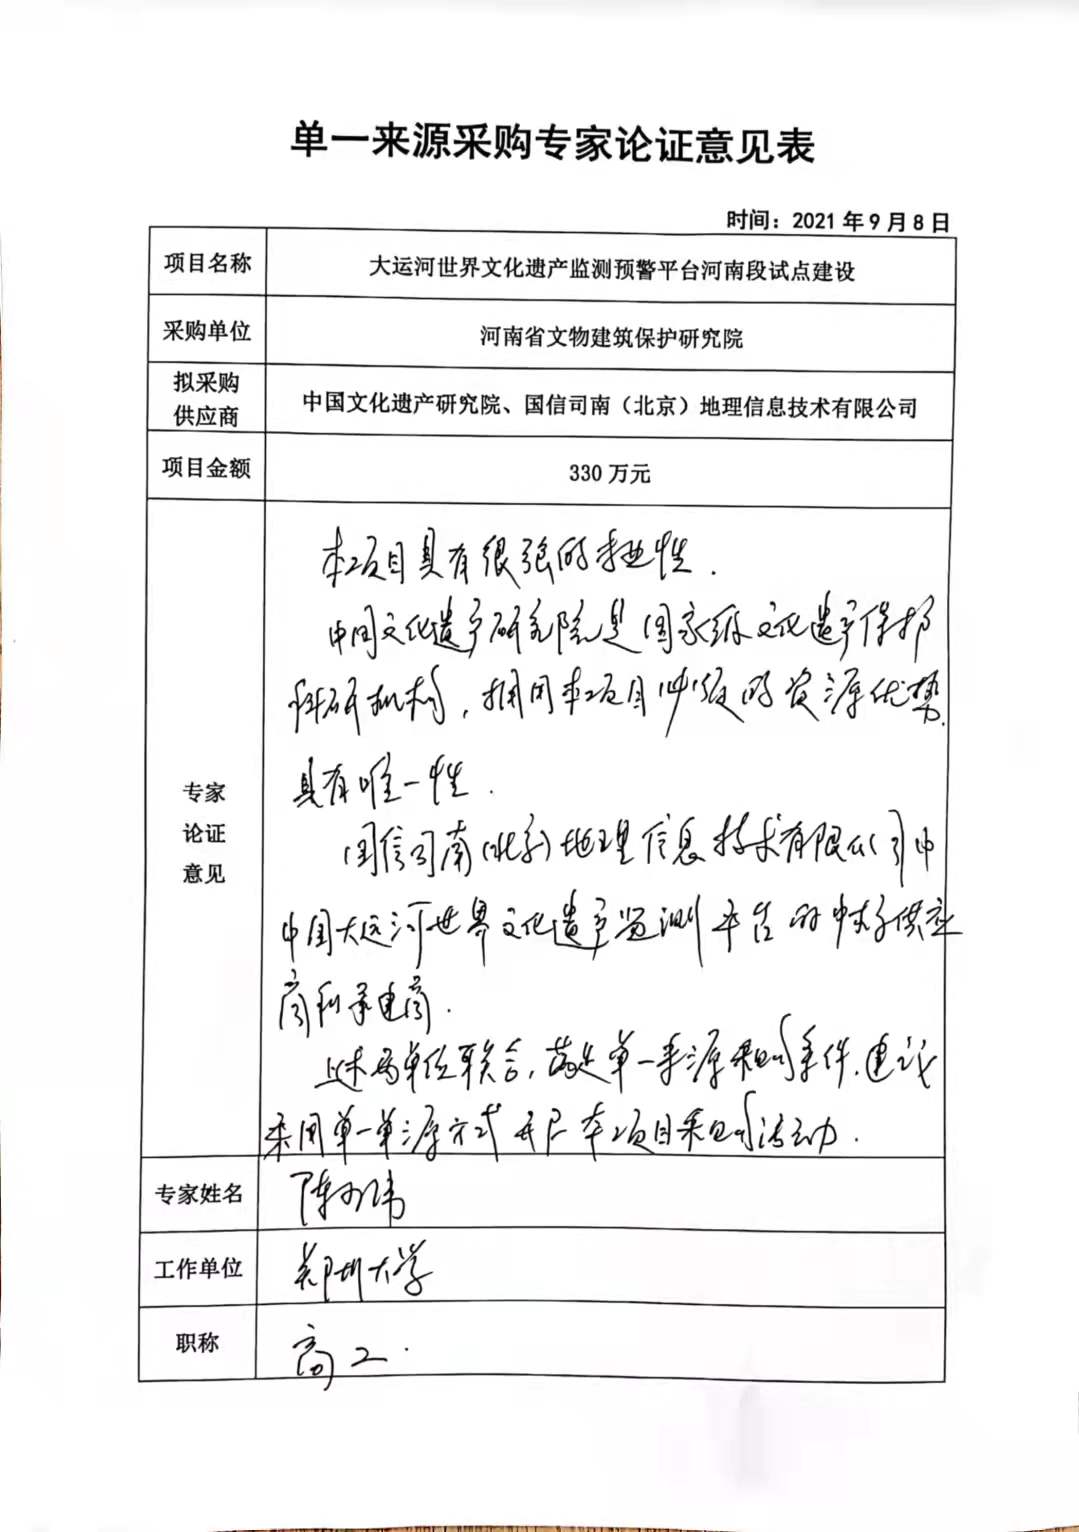 单一来源采购专家论证意见表
时间：2021年9月8日
项目名称
大运河世界文化遗产监测预警平台河南段试点建设
采购单位
河南省文物建筑保护研究院
拟采购
供应商
中国文化遗产研究院、国信司南（北京）地理信息技术有限公司
项目金额
330万元
专家
论证
意见
本项目具有很强的专业性.
中国文化遗产研究院是国家级文化遗产保护
科研机构，拥用本项目的资源优势
具有唯一性.
国信司南（北京）地理信息技术有限公司
中国大运河世界文化遗产监测平台的供应
商和承建商.
上述两单位联合，满足单一来源采购条件.建议
采用单一来源方式开展本项目采购活动.
专家姓名
陈
工作单位
郑州大学
职称
高工.